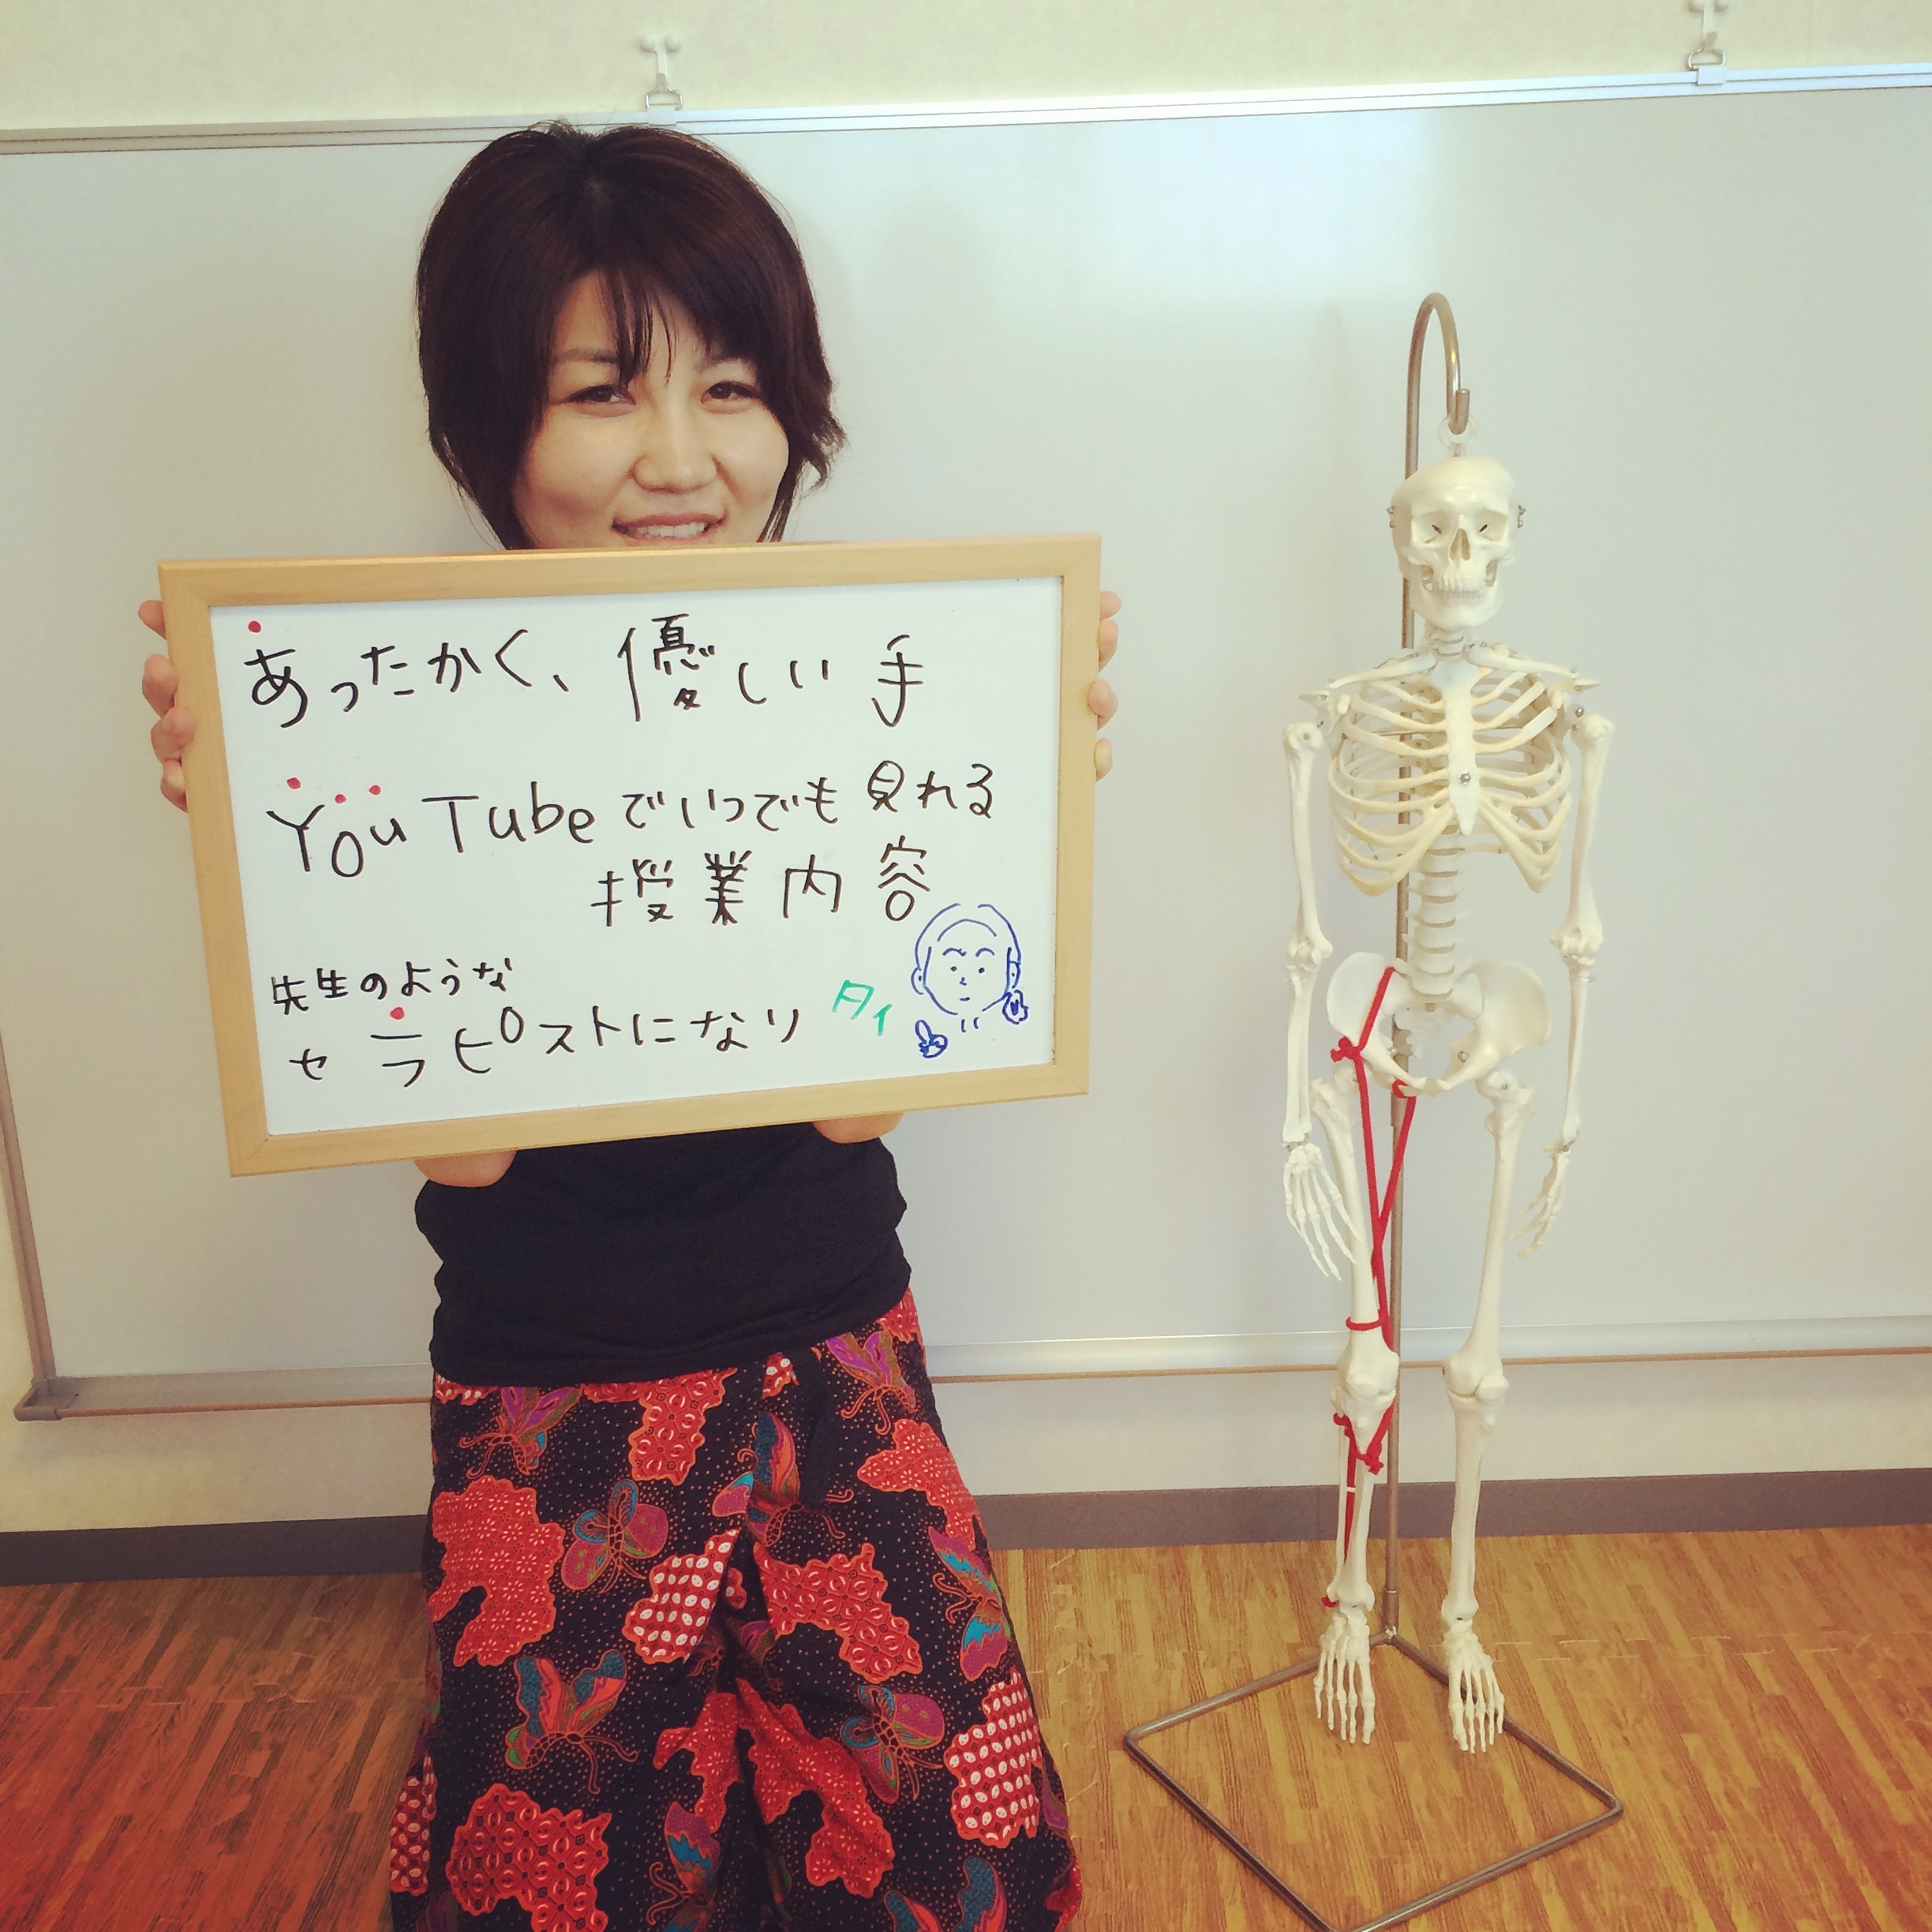 あったかく、優しい手
YouTubeでいつでも見れる
授業内容
先生のような
セラピストになり タイ